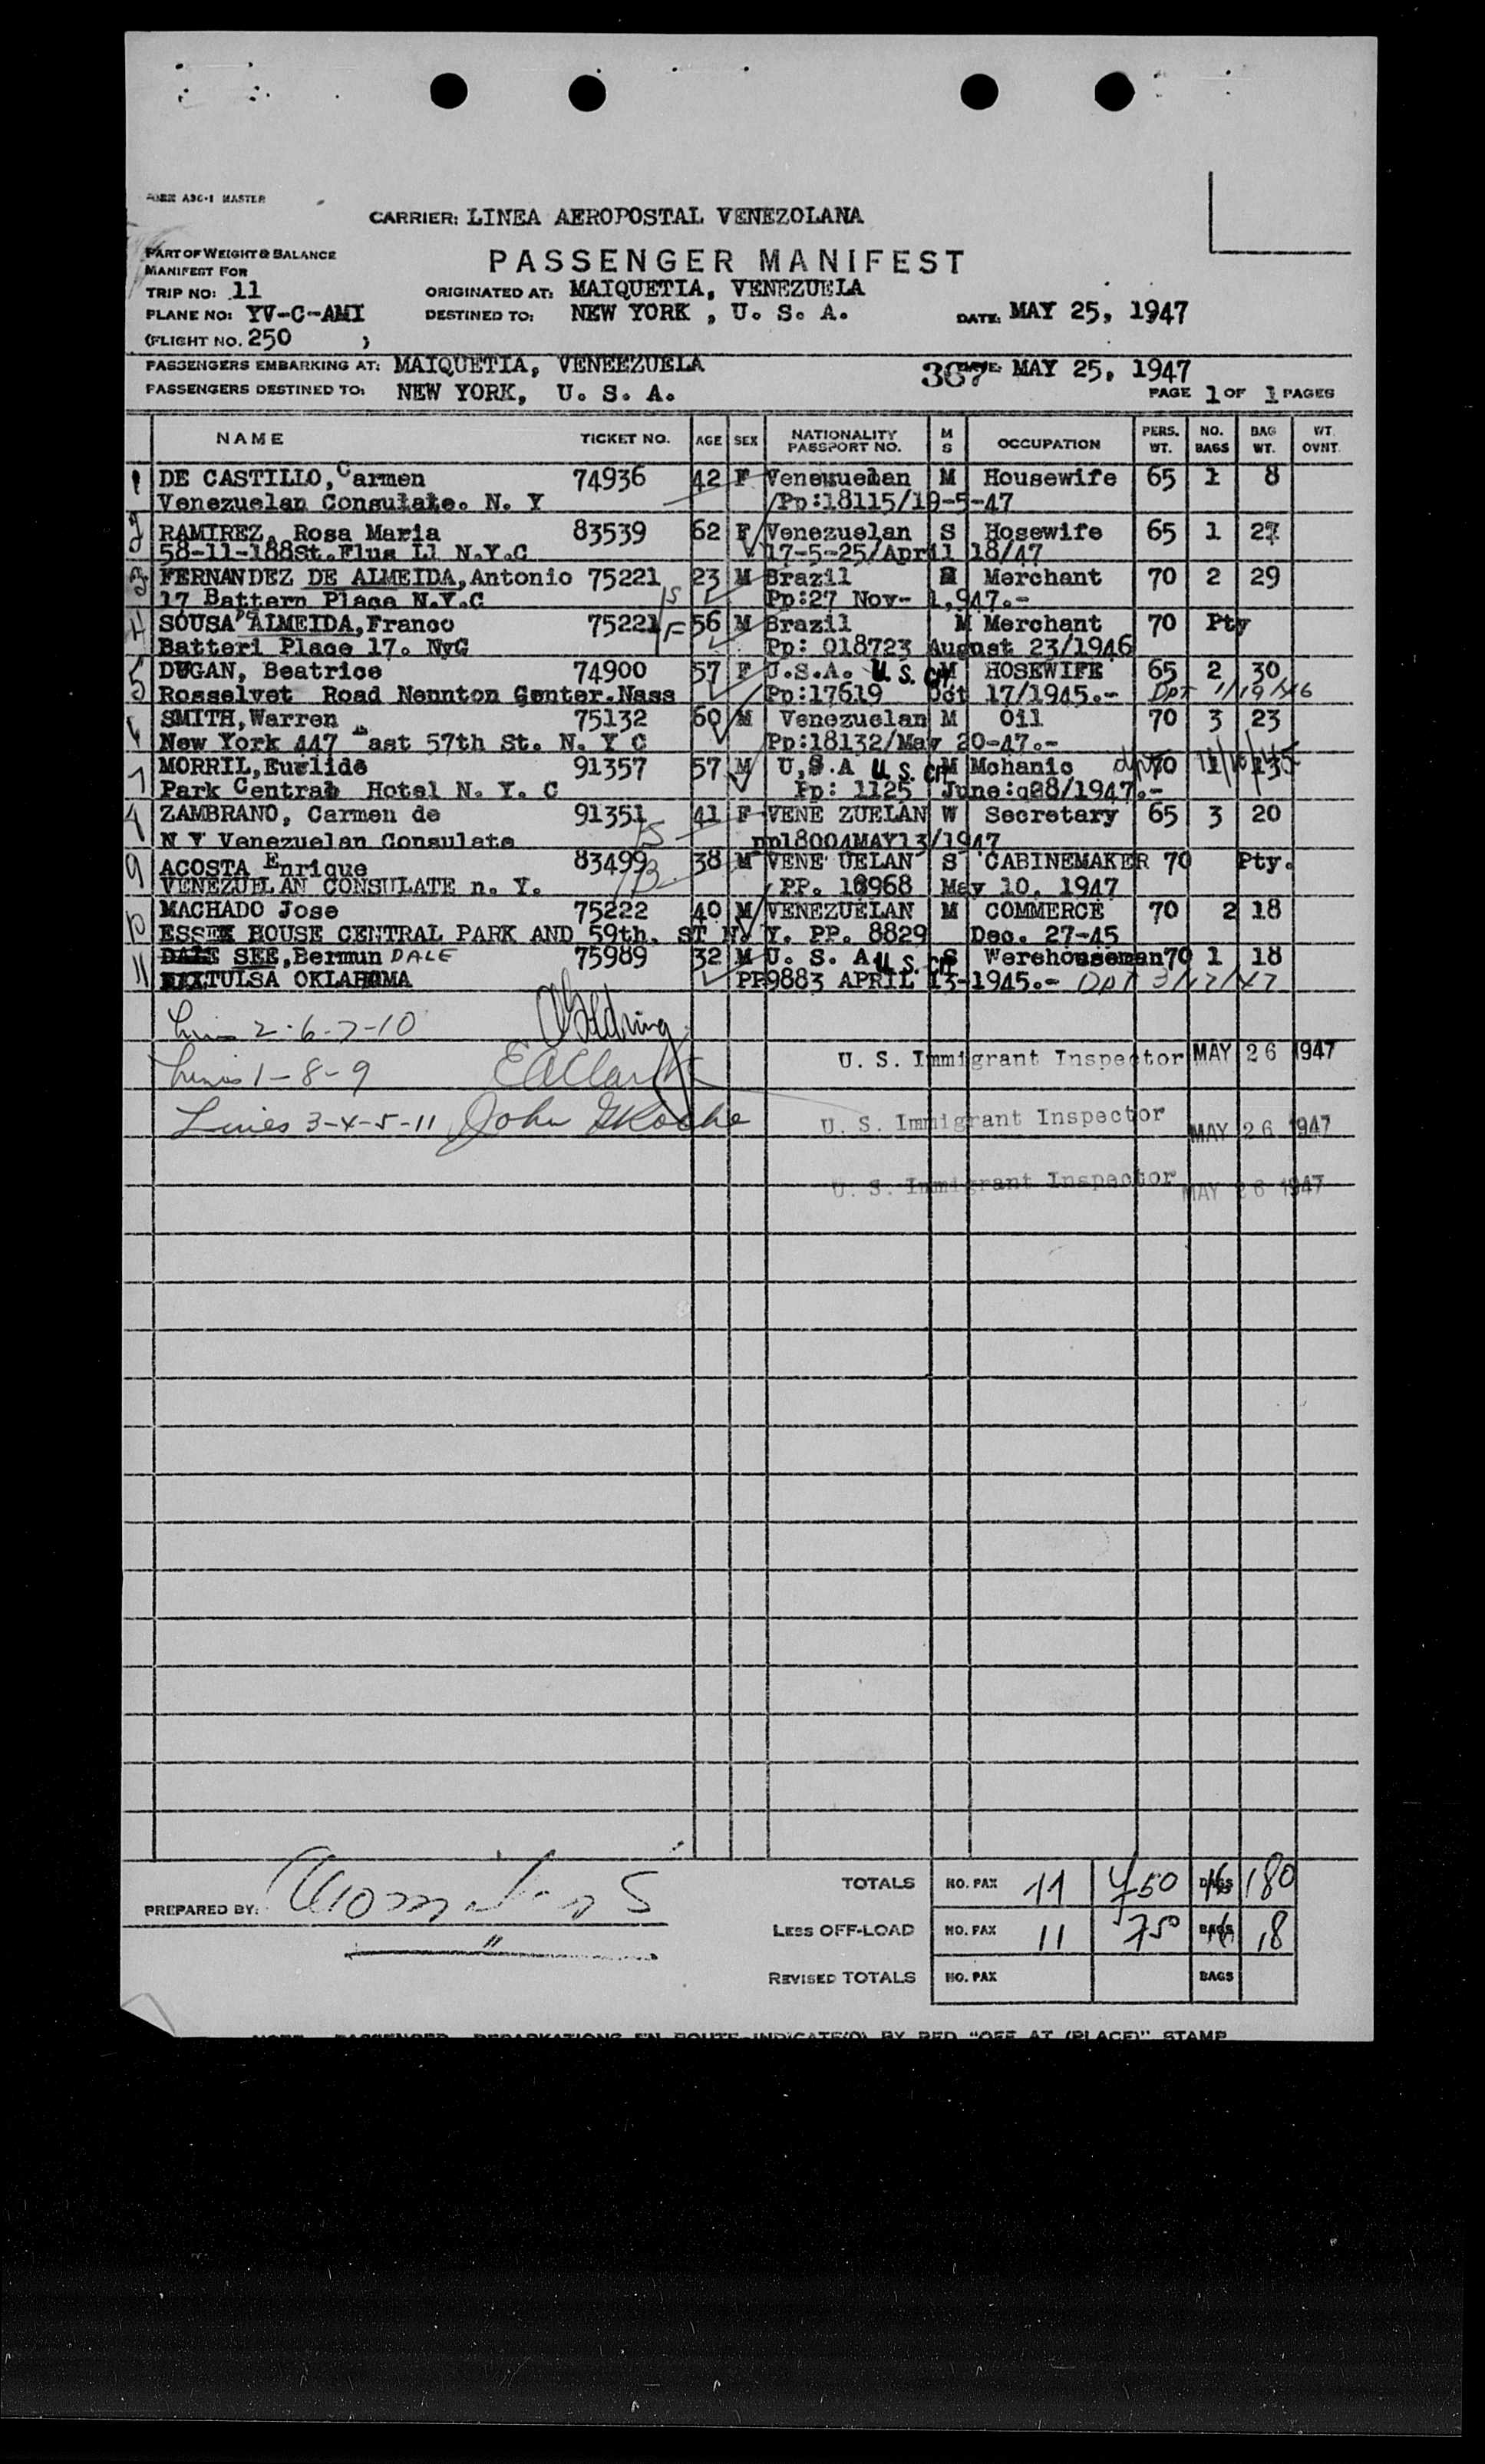 FORM ABC-1 MASTER
CARRIER: LINEA AEROPOSTAL VENEZOLANA
PART OF WEIGHT & BALANCE
MANIFEST FOR
PASSENGER MANIFEST
TRIP NO: 11 ORIGINATED AT: MAIQUETIA, VENEZUELA
PLANE NO: YV-C-AMI DESTINED TO: NEW YORK , U. S. A. DATE: MAY 25, 1947
(FLIGHT NO. 250 )
PASSENGERS EMBARKING AT: MAIQUETIA, VENEEZUELA 367 DATE: MAY 25, 1947
PASSENGERS DESTINED TO: NEW YORK, U. S. A. PAGE 1 OF 1 PAGES
NAME TICKET NO. AGE SEX NATIONALITY PASSPORT NO. M S OCCUPATION PERS. WT. NO. BAGS BAG WT. WT. OVNT.
1 DE CASTILLO, Carmen 74936 42 F Venezuelan M Housewife 65 1 8
Venezuelan Consulate. N. Y /Pp:18115/19-5-47
2 RAMIREZ, Rosa Maria 83539 62 F Venezuelan S Hosewife 65 1 27
58-11-188St.Flus Ll N.Y.C 17-5-25/April 18/47
3 FERNANDEZ DE ALMEIDA, Antonio 75221 23 M Brazil Merchant 70 2 29
17 Battern Place N.Y.C /S Pp:27 Nov- 1,947.-
4 SOUSA DE ALMEIDA, Franco 75221 /F 56 M Brazil M Merchant 70 Pty
Batteri Place 17. NyC Pp: 018723 August 23/1946
5 DUGAN, Beatrice 74900 57 F U.S.A. U.S. CIT M HOSEWIFE 65 2 30
Rosselvet Road Neunton Center.Nass Pp:17619 Oct 17/1945.- DPT 1/19/46
6 SMITH, Warren 75132 60 M Venezuelan M Oil 70 3 23
New York 447 East 57th St. N. Y C Pp:18132/May 20-47.-
7 MORRIL, Euclide 91357 57 M U,S.A U.S. CIT M Mchanic 70
Park Central Hotel N. Y. C Pp: 1125 June:q28/1947.-
ZAMBRANO, Carmen de 91351 41 F VENE ZUELAN W Secretary 65 3 20
N Y Venezuelan Consulate pp18004MAY13/1947
9 ACOSTA Enrique 83499 38 M VENE UELAN S CABINEMAKER 70 Pty.
VENEZUELAN CONSULATE n. Y. PP. 18968 May 10, 1947
10 MACHADO Jose 75222 40 M VENEZUELAN M COMMERCE 70 2 18
ESSEX HOUSE CENTRAL PARK AND 59th. ST N. Y. PP. 8829 Dec. 27-45
11 SEE, Bermun DALE 75989 32 M U. S. A U.S. CIT S Werehouseman 70 1 18
TULSA OKLAHOMA PP9883 APRIL 13-1945.- DPT 3/17/47
Lines 2-6-7-10
U. S. Immigrant Inspector MAY 26 1947
Lines 1-8-9 EAClark
Lines 3-4-5-11 John Roche U. S. Immigrant Inspector MAY 26 1947
U. S. Immigrant Inspector MAY 26 1947
TOTALS NO. PAX 11 750 BAGS 16 180
PREPARED BY:
LESS OFF-LOAD NO. PAX 11 750 BAGS 18
REVISED TOTALS NO. PAX BAGS
NOTE PASSENGER DEBARKATIONS EN ROUTE INDICATE(D) BY RED "OFF AT (PLACE)" STAMP